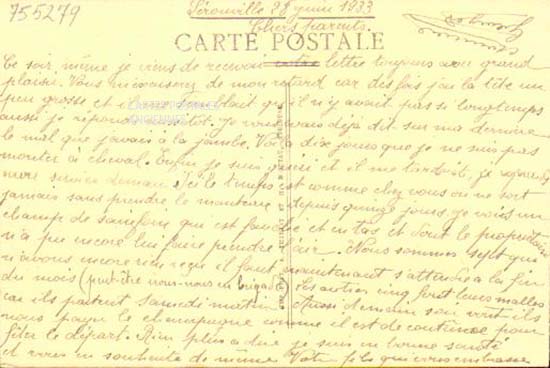 755279
Sérouville 28 juin 1933
Chers parents.
CARTE POSTALE
Ce soir même je viens de recevoir votre lettre toujours avec grand
plaisir. Vous m'excuserez de mon retard car des fois j'ai la tête un
peu grosse et il me semblait qu'il n'y avait pas si longtemps
aussi je réponds aussitôt. Je vous avais déjà dit sur ma dernière
le mal que j'avais à la jambe. Voilà dix jours que je ne suis pas
monter à cheval. Enfin je suis guéri et il me tardait, je reprends
mon service demain. Ici le temps est comme chez vous on ne sort
jamais sans prendre le manteau depuis quinze jours, je vois un
champ de sainfoin qui est fauché et en tas et dont le propriétaire
n'a pu encore lui faire prendre l'air. Nous sommes sept qui
n'avons encore rien reçu il faut maintenant s'attendre à la fin
du mois (peut-être irons-nous en brigade) les autres cinq font leurs malles
car ils partent samedi matin. Aussi demain soir vont ils
nous payer le champagne comme il est de coutume pour
fêter le départ. Rien plus à dire je suis en bonne santé
et vous en souhaite de même. Votre fils qui vous embrasse